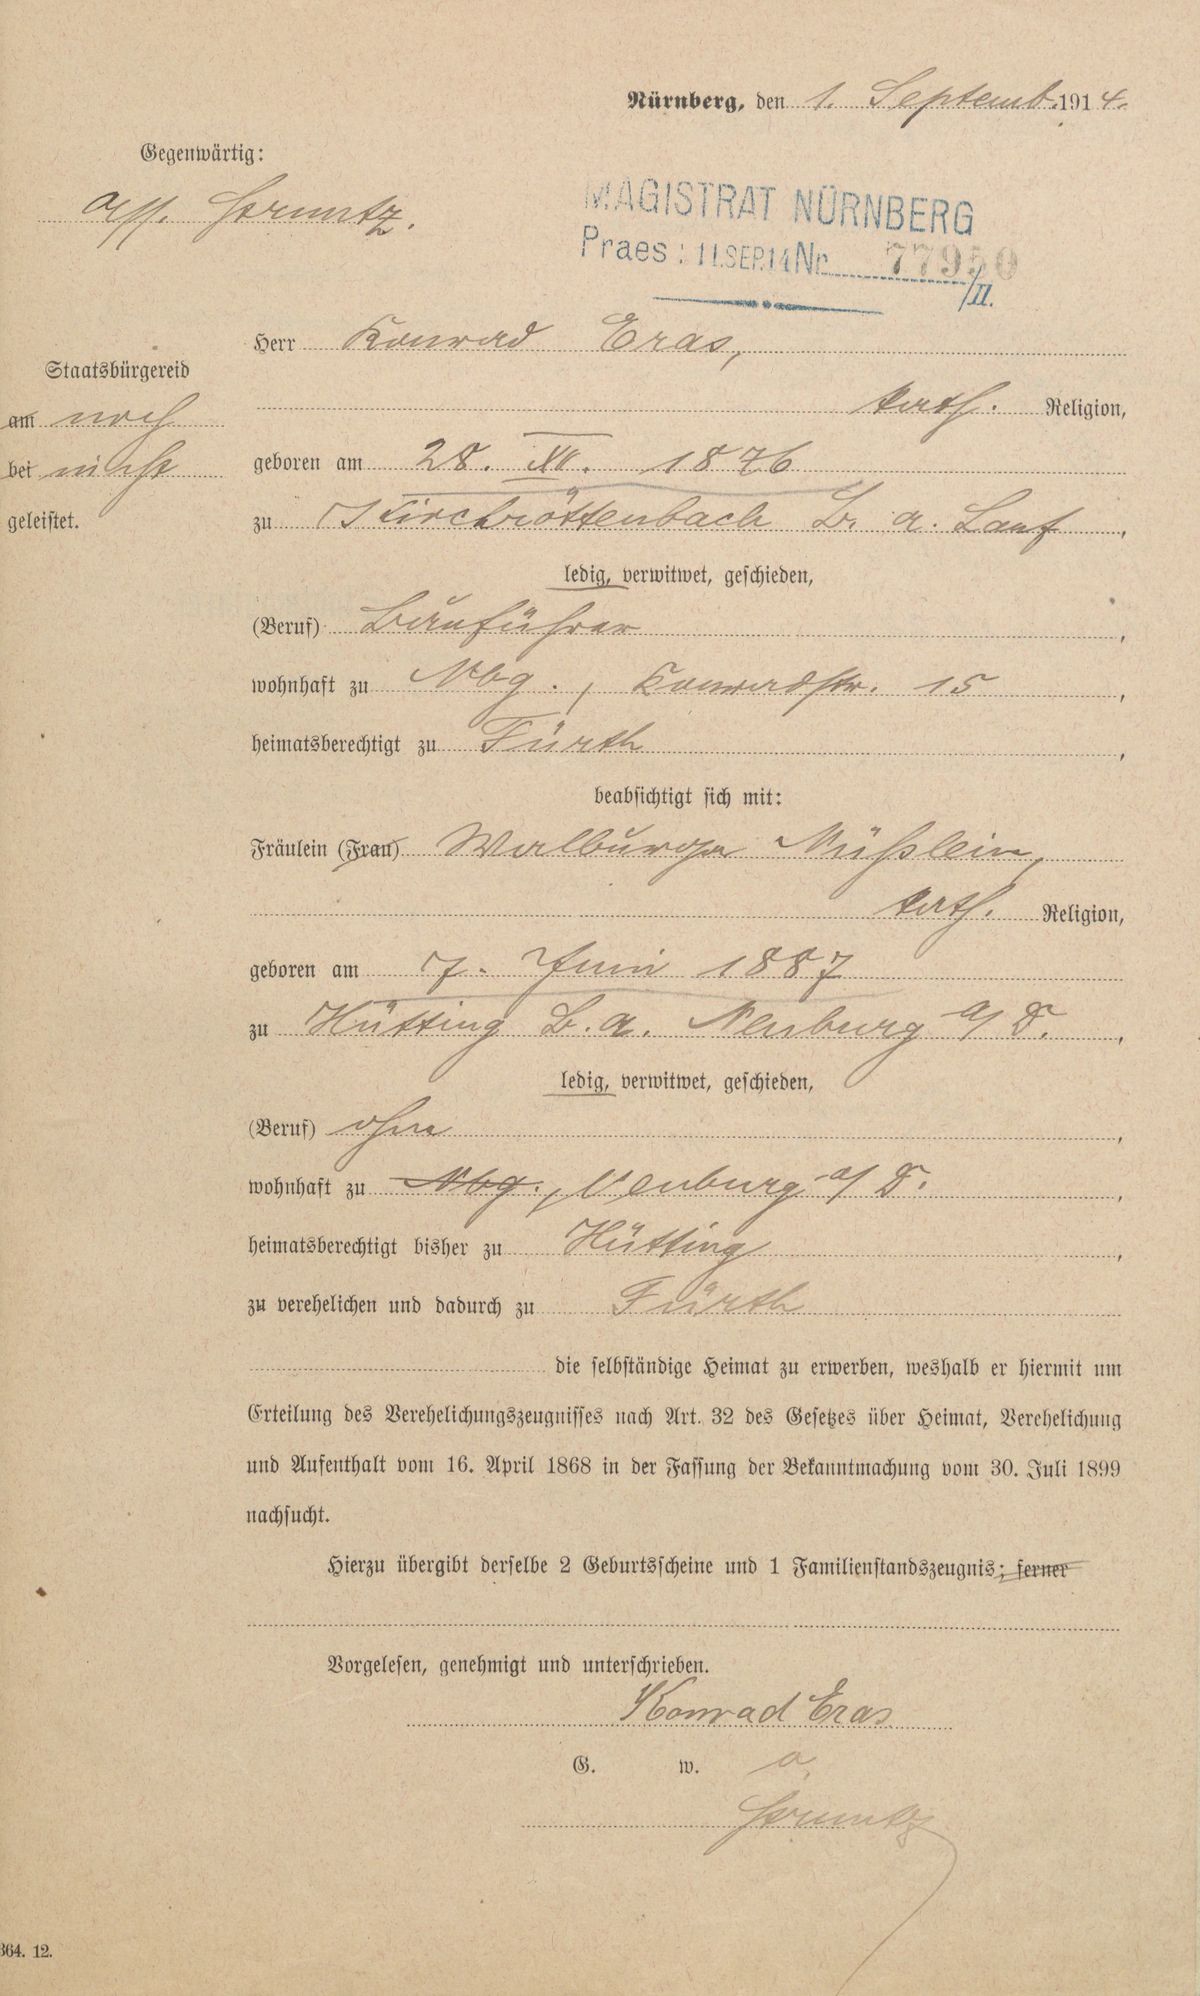 Nürnberg, den 1. Septemb. 1914.
Gegenwärtig:
MAGISTRAT NÜRNBERG
Praes: 11.SEP.14 Nr. 77950
/II.
Herr Konrad Eras,
Staatsbürgereid
am noch
kath. Religion,
bei nicht
geboren am 28. XI. 1876
geleistet.
zu Kirchröttenbach B. a. Lauf,
ledig, verwitwet, geschieden,
(Beruf) Bauführer,
wohnhaft zu Nbg., Konradstr. 15,
heimatsberechtigt zu Fürth,
beabsichtigt sich mit:
Fräulein (Frau) Walburga Müßlein,
kath. Religion,
geboren am 7. Juni 1887
zu Hütting B. a. Neuburg a/D.,
ledig, verwitwet, geschieden,
(Beruf) ohne,
wohnhaft zu Nbg., Neuburg a/D.,
heimatsberechtigt bisher zu Hütting,
zu verehelichen und dadurch zu Fürth
die selbständige Heimat zu erwerben, weshalb er hiermit um
Erteilung des Verehelichungszeugnisses nach Art. 32 des Gesetzes über Heimat, Verehelichung
und Aufenthalt vom 16. April 1868 in der Fassung der Bekanntmachung vom 30. Juli 1899
nachsucht.
Hierzu übergibt derselbe 2 Geburtsscheine und 1 Familienstandszeugnis; ferner
Vorgelesen, genehmigt und unterschrieben.
Konrad Eras
G. w. o.
364. 12.